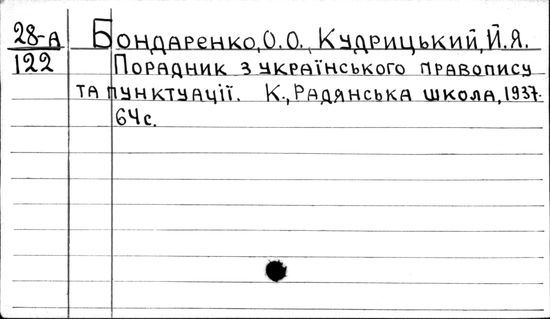 28-А Бондаренко, О.О., Кудрицький, Й.Я.
122 Порадник з українського правопису
та пунктуації. К., Радянська школа, 1937.
64с.